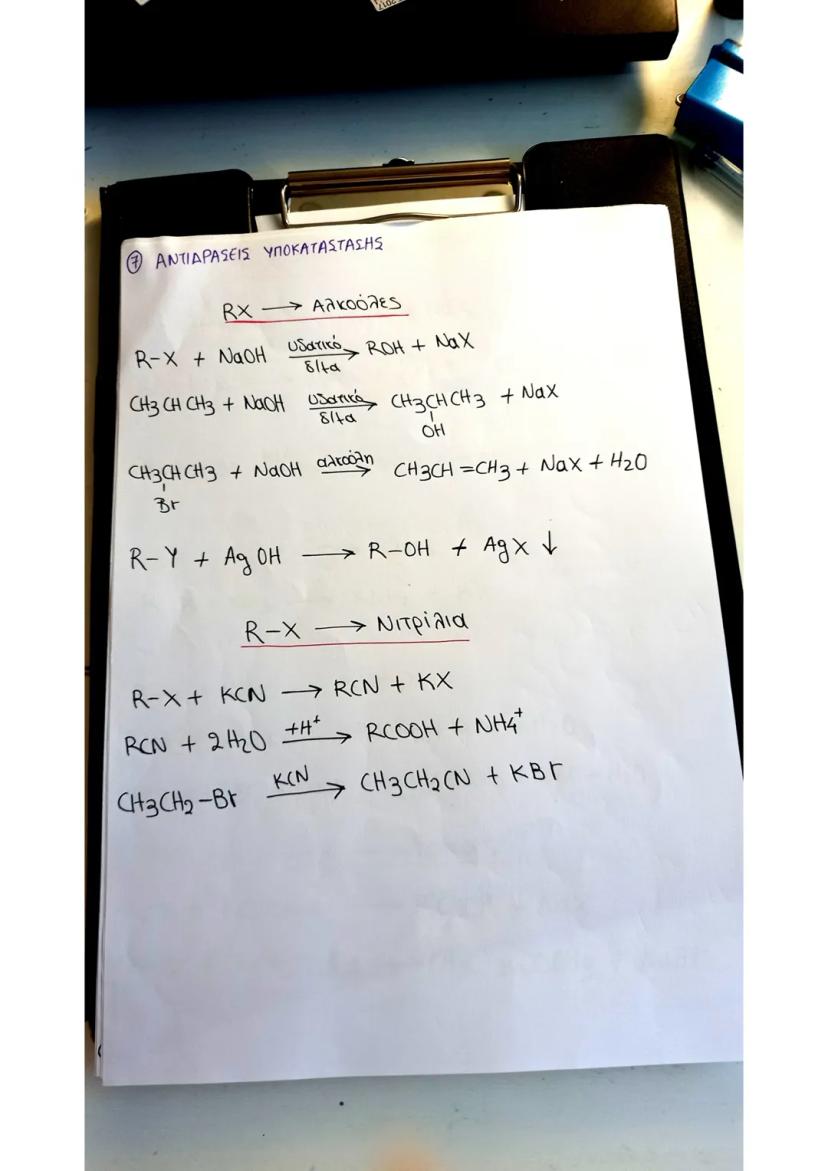 ⑦ ΑΝΤΙΔΡΑΣΕΙΣ ΥΠΟΚΑΤΑΣΤΑΣΗΣ
RX ⟶ Αλκοόλες
R-X + NaOH υδατικό δ/τα ⟶ ROH + NaX
CH3CHCH3 + NaOH υδατικό δ/τα ⟶ CH3CHCH3 + NaX
OH
CH3CHCH3 + NaOH αλκοόλη ⟶ CH3CH=CH3 + NaX + H2O
Br
R-Y + AgOH ⟶ R-OH + AgX ↓
R-X ⟶ Νιτρίλια
R-X + KCN ⟶ RCN + KX
RCN + 2H2O +H⁺ ⟶ RCOOH + NH4⁺
CH3CH2-Br KCN ⟶ CH3CH2CN + KBr